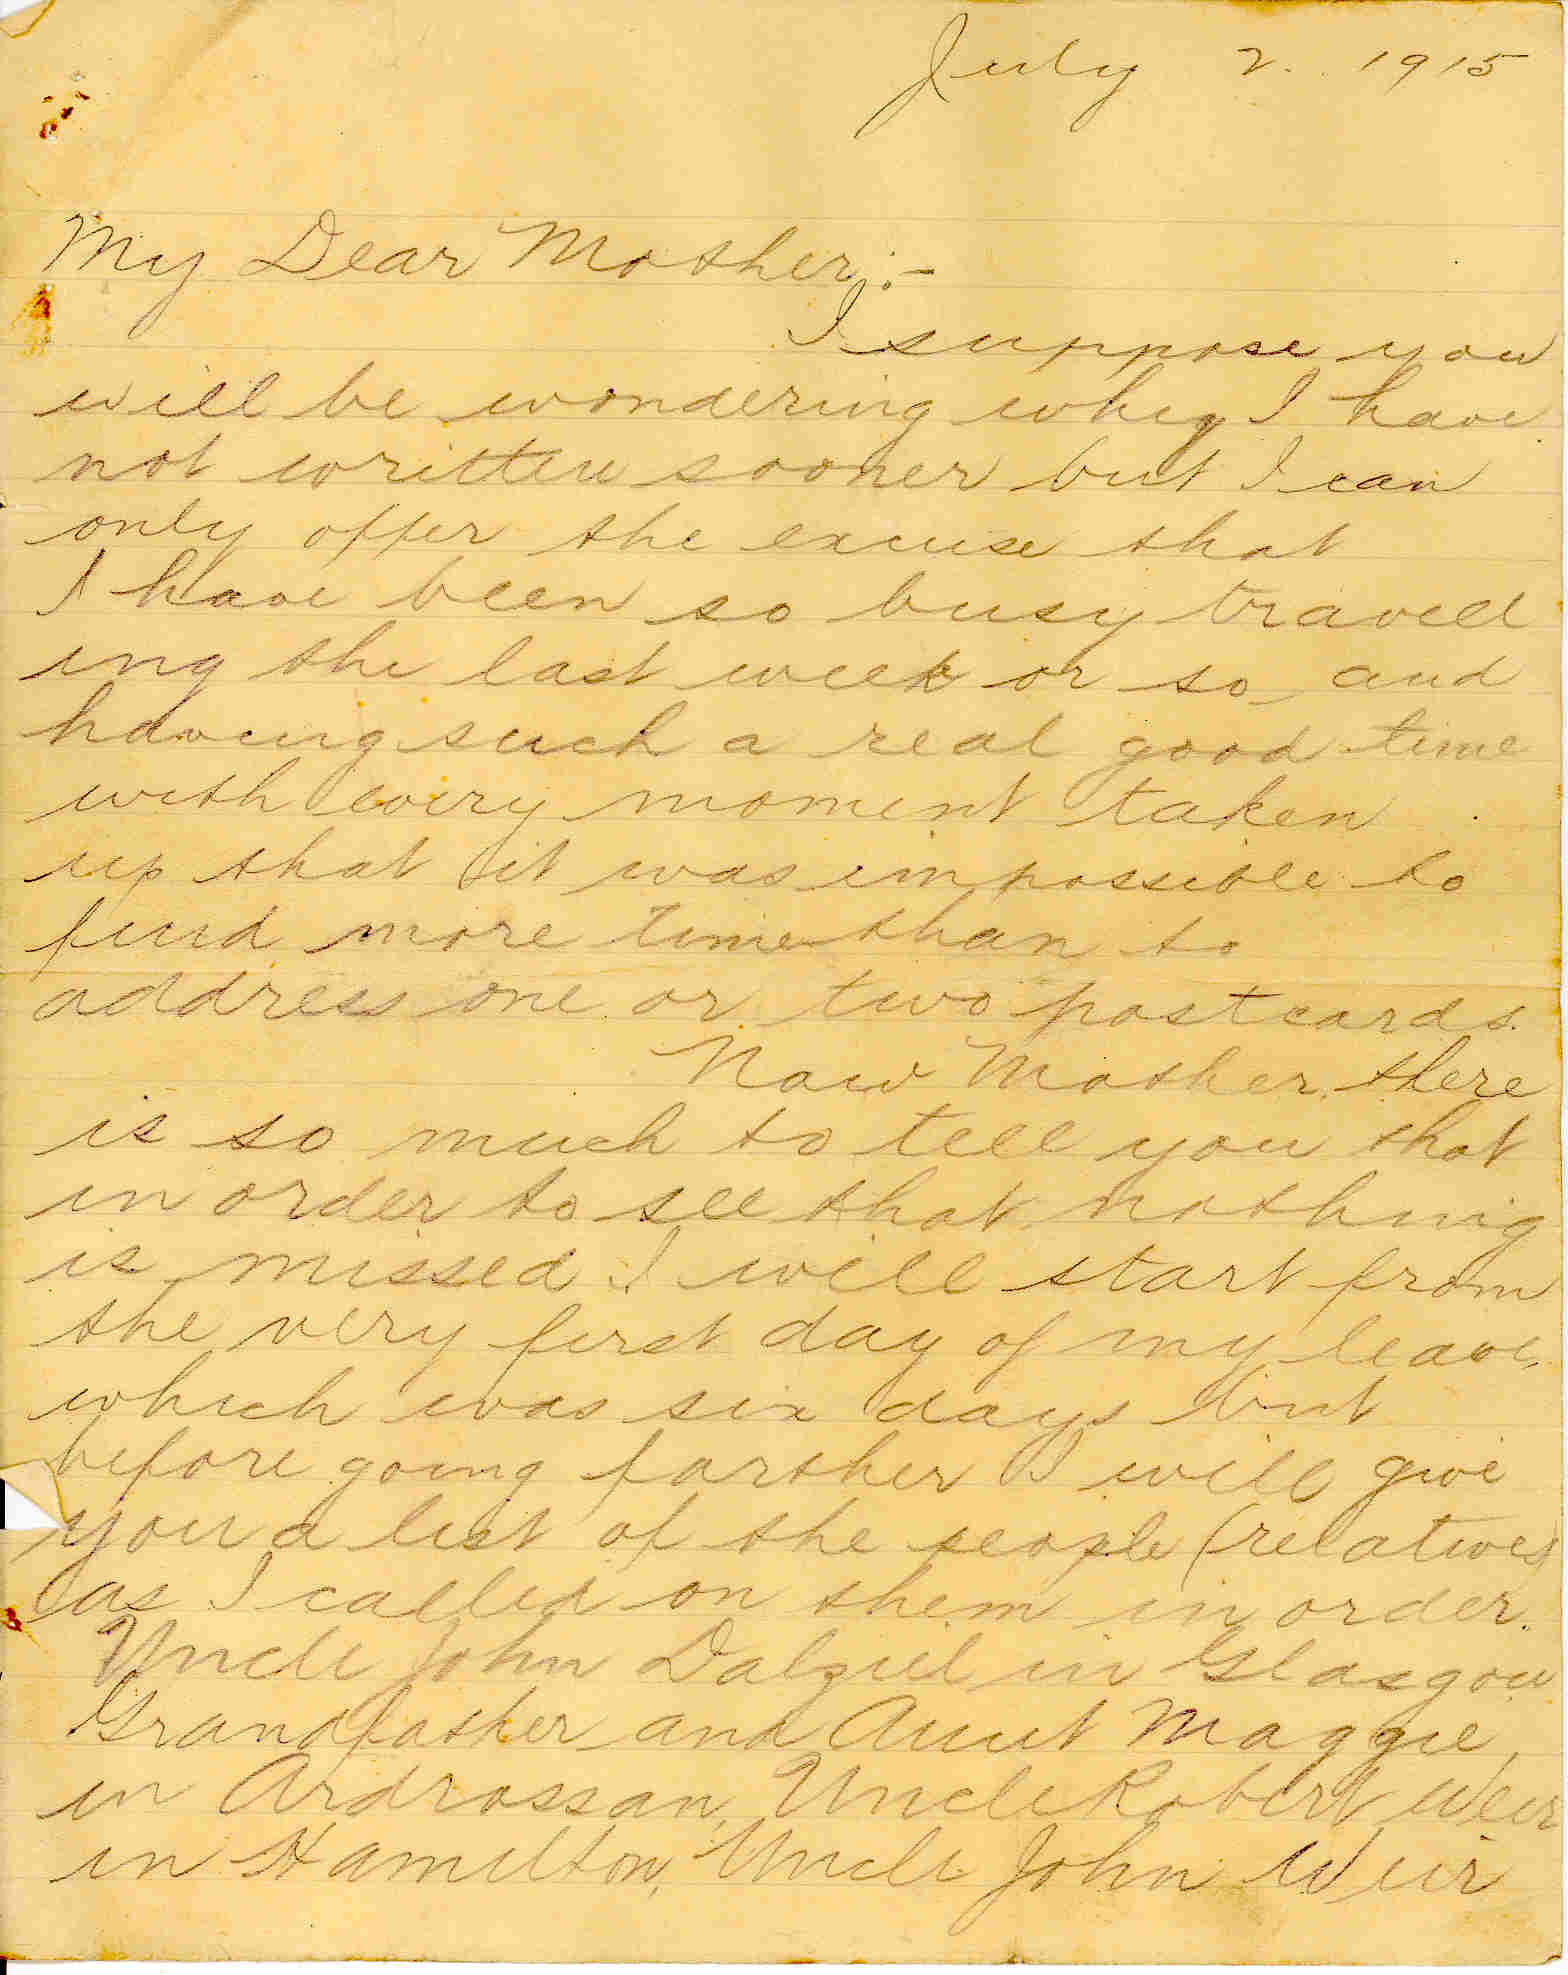 July 2. 1915
My Dear Mother:-
I suppose you
will be wondering why I have
not written sooner but I can
only offer the excuse that
I have been so busy travell
ing the last week or so, and
having such a real good time
with every moment taken
up that it was impossible to
find more time than to
address one or two postcards.
Now Mother, there
is so much to tell you that
in order to see that nothing
is missed I will start from
the very first day of my leave,
which was six days but
before going farther I will give
you a list of the people (relatives)
as I called on them in order.
Uncle John Dalziel in Glasgow
Grandfather and Aunt Maggie,
in Ardrossan, Uncle Robert Weir
in Hamilton, Uncle John Weir